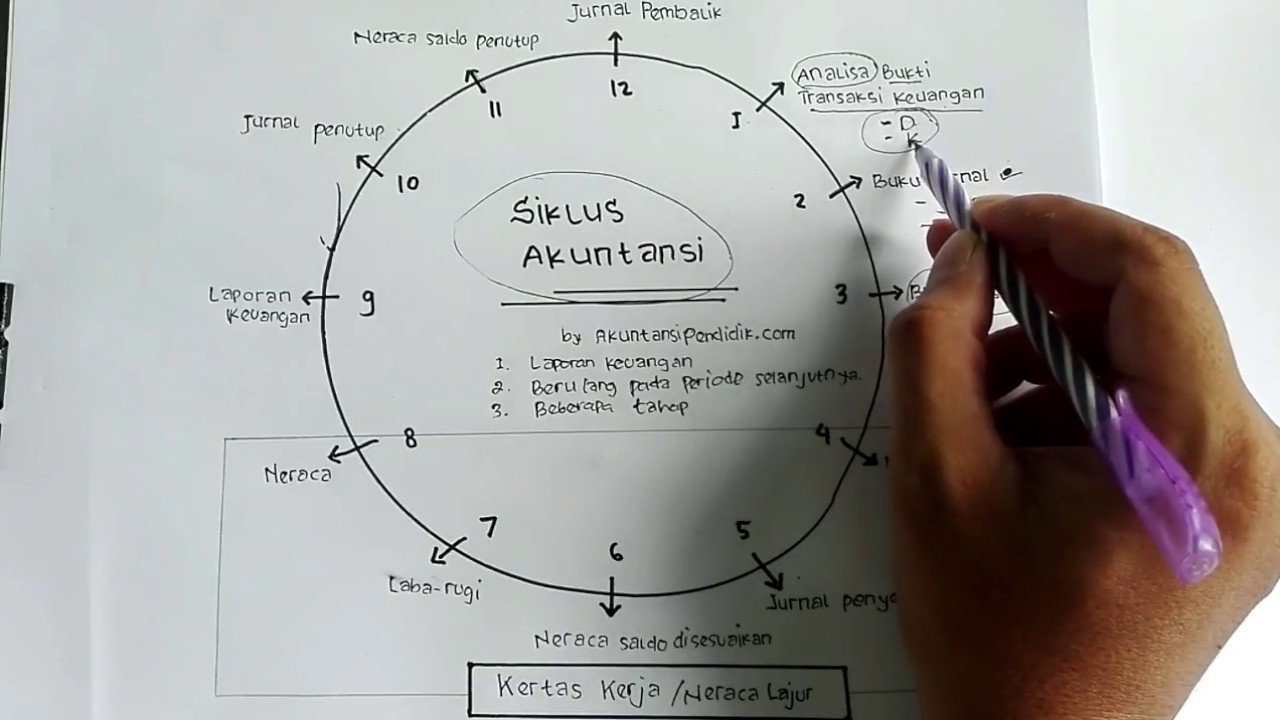 Jurnal Pembalik
12
Neraca saldo penutup
11
Jurnal penutup
10
Analisa Bukti
Transaksi Keuangan
- D
- K
1
2
3
SIKLUS
AKUNTANSI
by AkuntansiPendidik.com
1. Laporan keuangan
2. Berulang pada periode selanjutnya.
3. Beberapa tahap
Laporan
Keuangan
9
4
8
Neraca
7
Laba-rugi
6
5
Jurnal
Neraca saldo disesuaikan
Kertas Kerja/Neraca Lajur